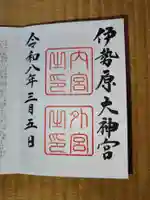 伊勢原大神宮
外宮之印
内宮之印
令和八年三月五日